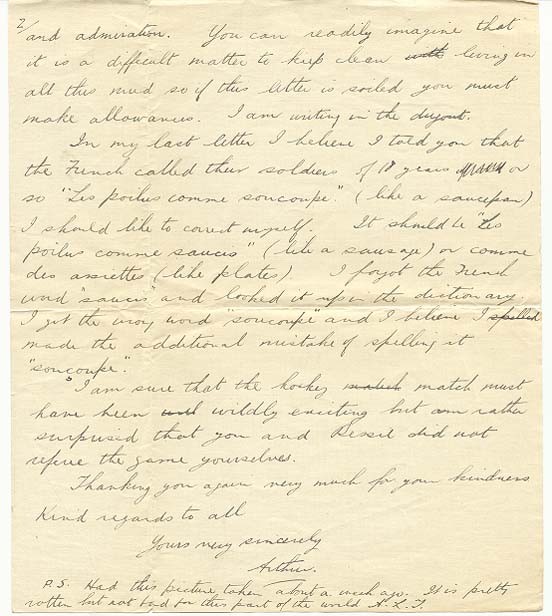 2/
and admiration. You can readily imagine that
it is a difficult matter to keep clean with living in
all this mud so if this letter is soiled you must
make allowances. I am writing in the dugout.
In my last letter I believe I told you that
the French called their soldiers of 18 years or
so "Les poilus comme soucoupe". (like a saucepan)
I should like to correct myself. It should be "Les
poilus comme saucis" (like a sausage) or comme
des assiettes (like plates). I forgot the French
word "saucis" and looked it up in the dictionary.
I got the wrong word "soucoupe" and I believe I spelled
made the additional mistake of spelling it
"soucoupe."
I am sure that the hockey match match must
have been wildly exciting but am rather
surprised that you and Bessie did not
referee the game yourselves.
Thanking you again very much for your kindness
Kind regards to all
Yours very sincerely
Arthur.
P.S. Had this picture taken about a week ago. It is pretty
rotten but not bad for this part of the world A. L. J.